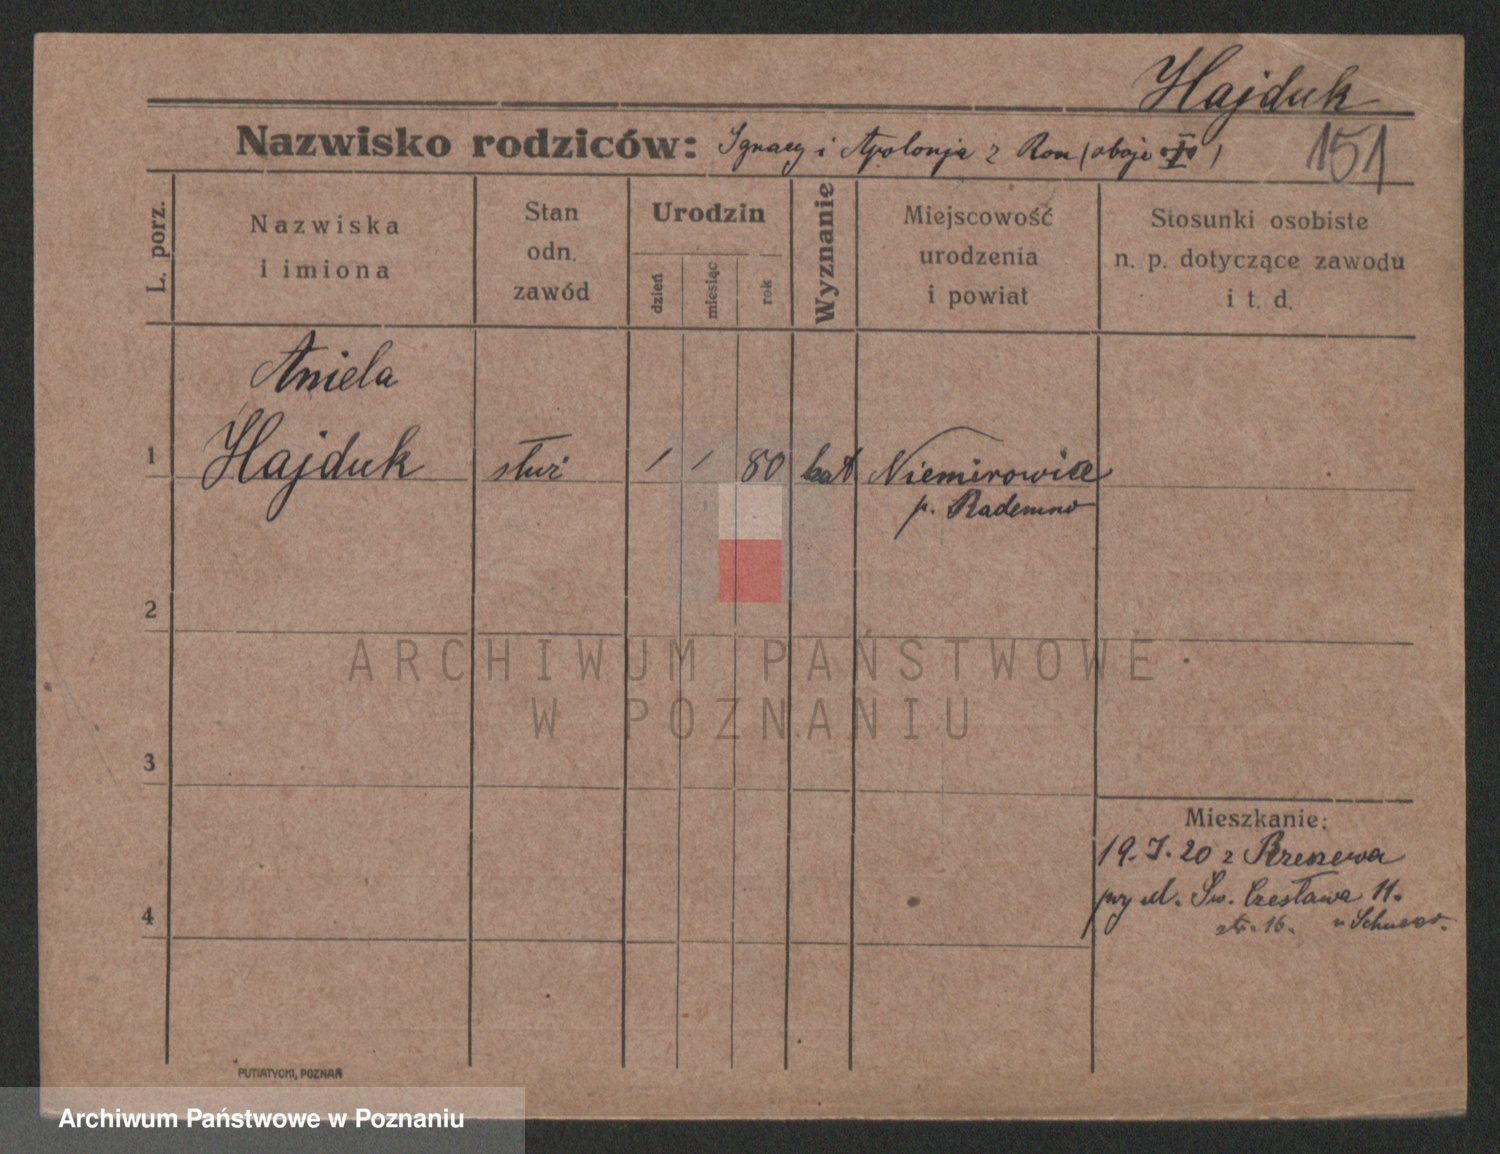 Hajduk
Nazwisko rodziców: Ignacy i Apolonja z Ron (oboje )
151
L. porz.
Nazwiska
i imiona
Stan
odn.
zawód
Urodzin
dzień
miesiąc
rok
Wyznanie
Miejscowość
urodzenia
i powiat
Stosunki osobiste
n. p. dotyczące zawodu
i t. d.
Aniela
1 Hajduk służ 1 1 80 kat Niemirowice
p. Rademno
2
ARCHIWUM PAŃSTWOWE
W POZNANIU
3
Mieszkanie:
19.I.20 z Rzeszewa
przy ul. Św. Czesława 11.
4
str. 16. u
PUTIATYCKI, POZNAŃ
Archiwum Państwowe w Poznaniu